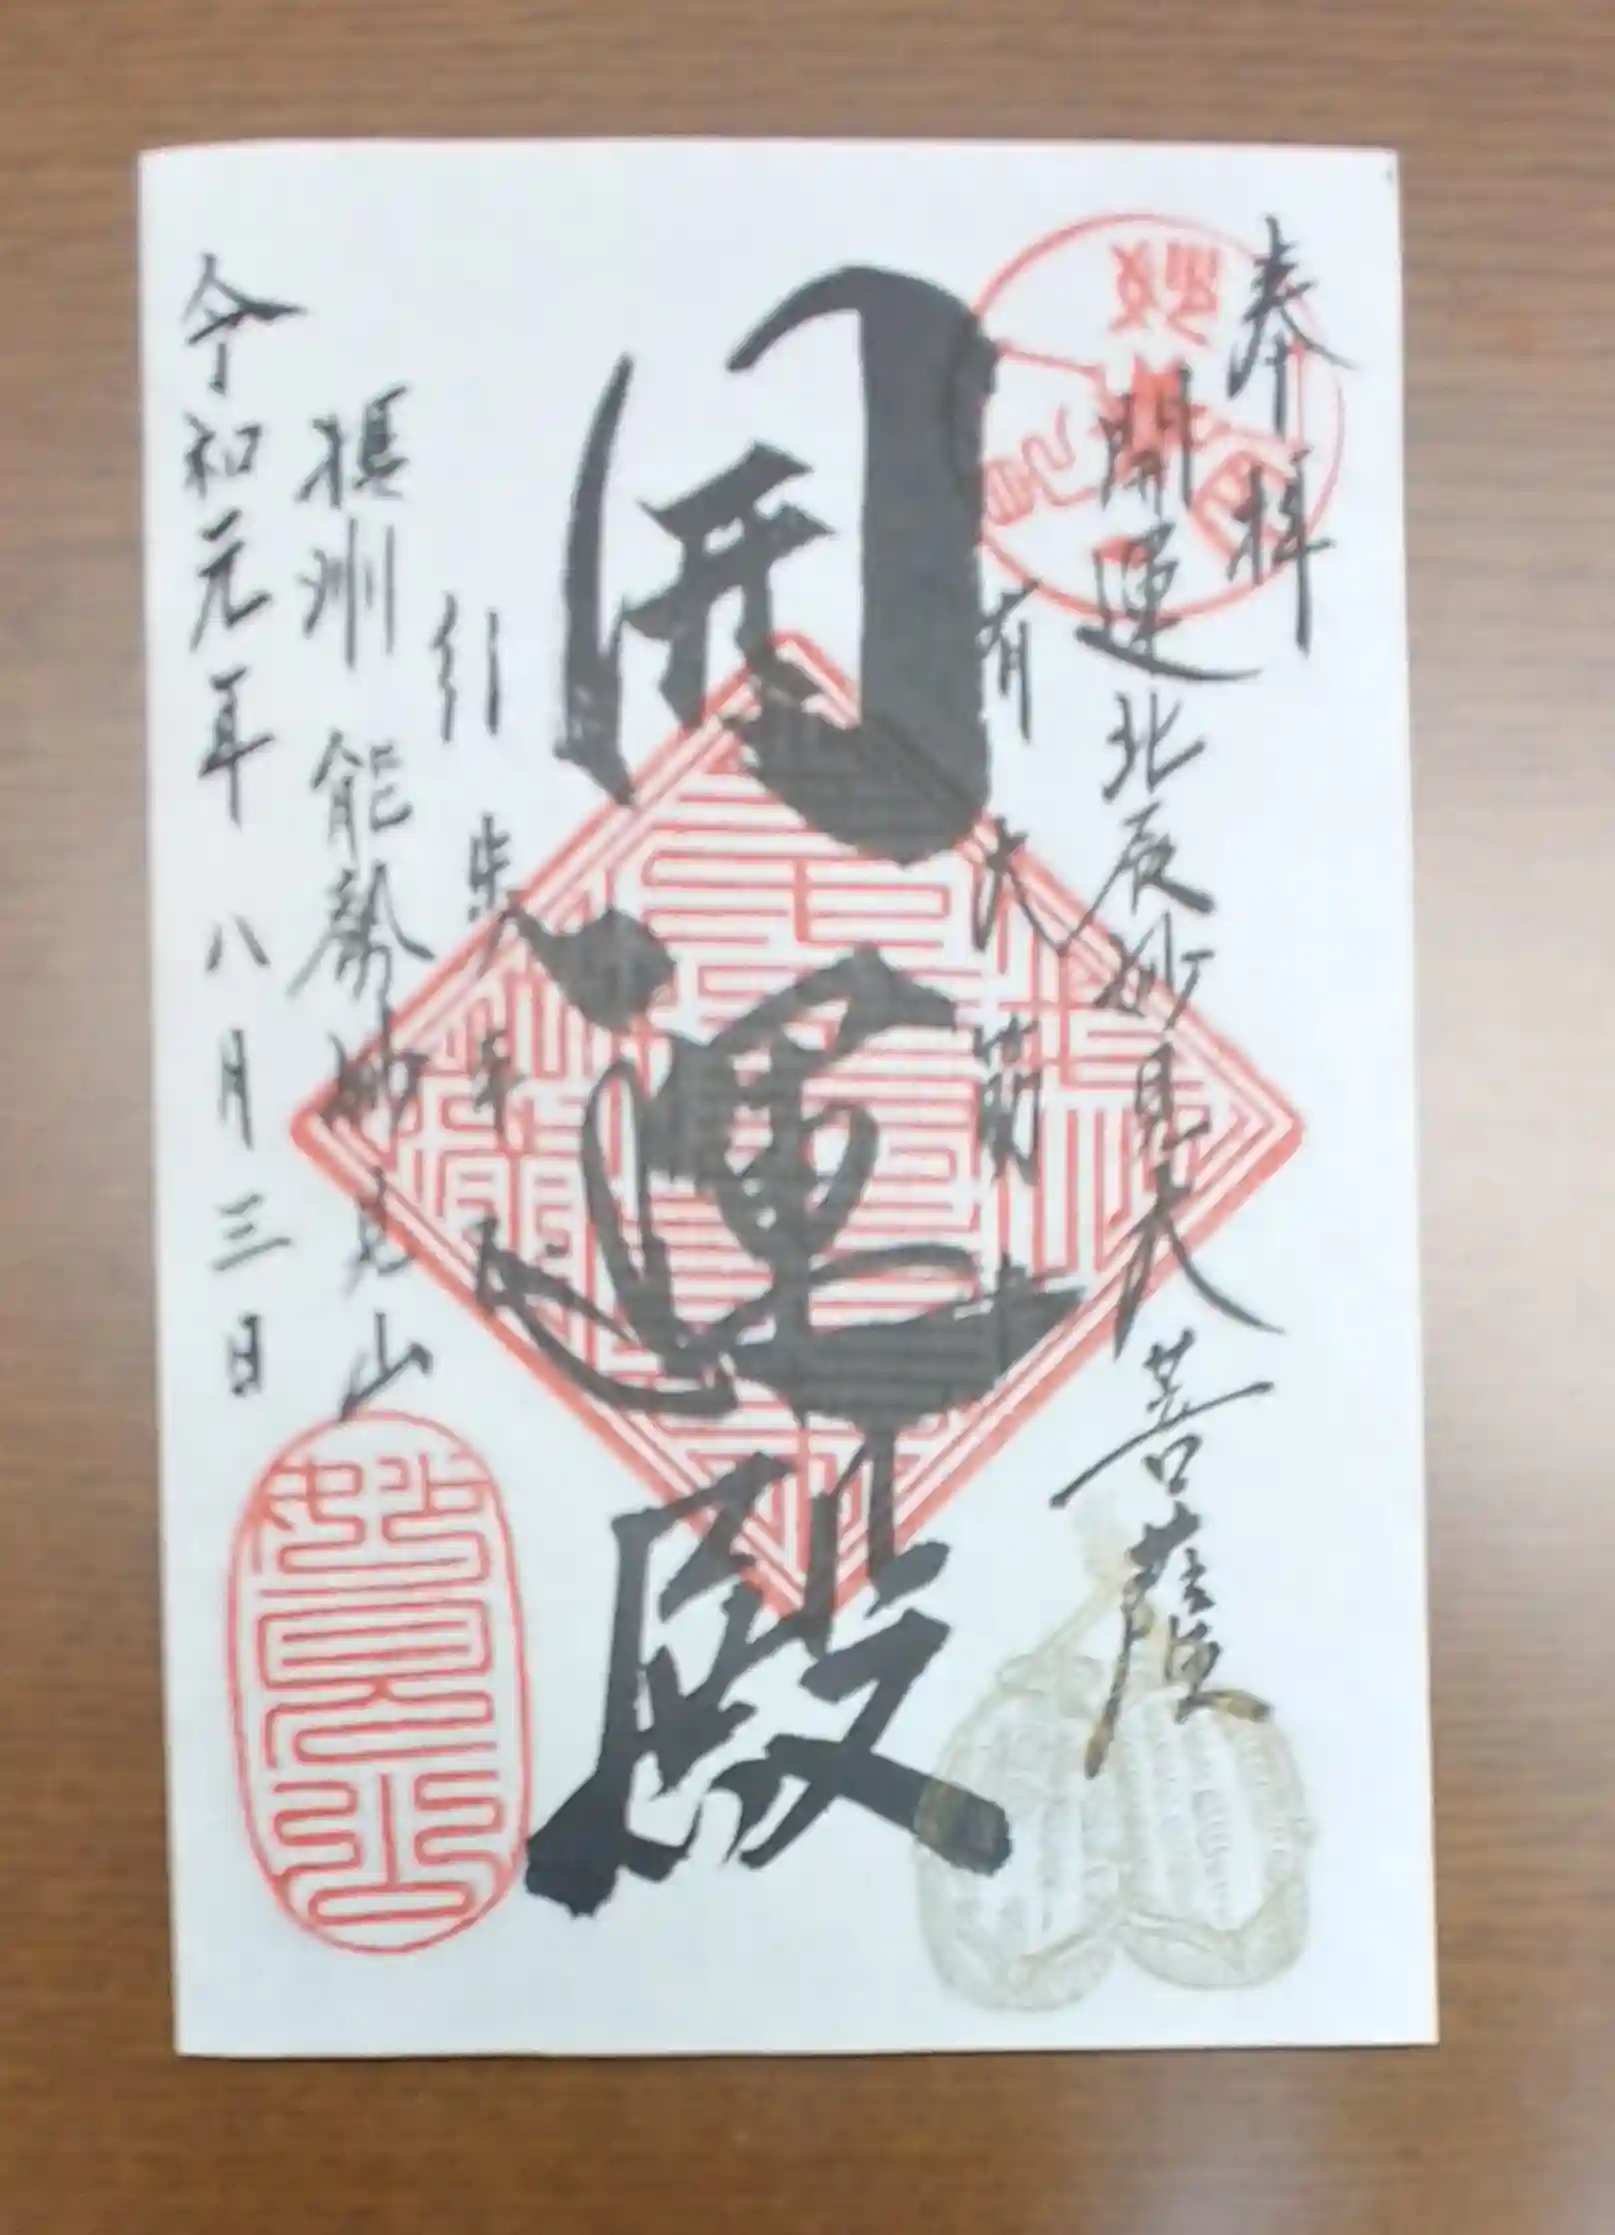 奉拝
開運北辰妙見大菩薩
有大筋力
開運殿
引柴車
摂州 能勢妙見山
令和元年 八月三日